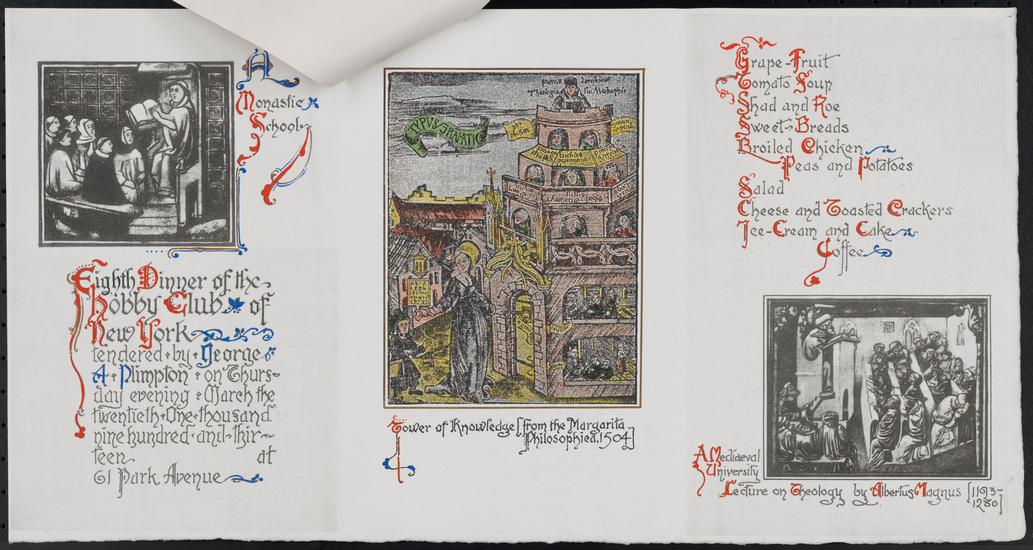 A
Monastic
School
Eighth Dinner of the
Hobby Club of
New York
tendered by George
A Plimpton on Thurs-
day evening March the
twentieth One thousand
nine hundred and thir-
teen at
61 Park Avenue
TYPVS
Tower of Knowledge [from the Margarita
Philosophica.1504]
Grape-Fruit
Tomato Soup
Shad and Roe
Sweet-Breads
Broiled Chicken
Peas and Potatoes
Salad
Cheese and Toasted Crackers
Ice-Cream and Cake
Coffee
A Mediaeval
University
Lecture on Theology by Albertus Magnus [1193-
1280]